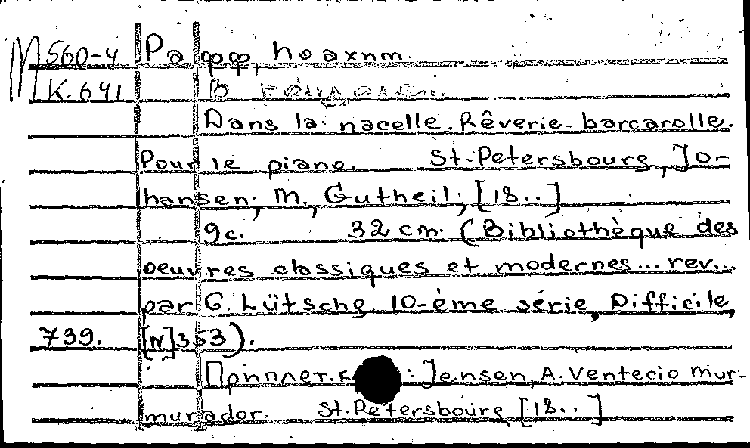 M 560-4 Рафф, Иоахим.
K.641 В
Dans la nacelle. Rêverie-barcarolle.
Pour le piano. St.-Petersbourg, Jo-
hansen; M., Gutheil, [18..]
9c. 32 cm. (Bibliothèque des
oeuvres classiques et modernes... rev..
par G. Lütsche 10-ème série, Difficile,
739. [N]353).
Приплет.к : Jensen, A. Ventecio mur-
murador. St.Petersboure, [18..]